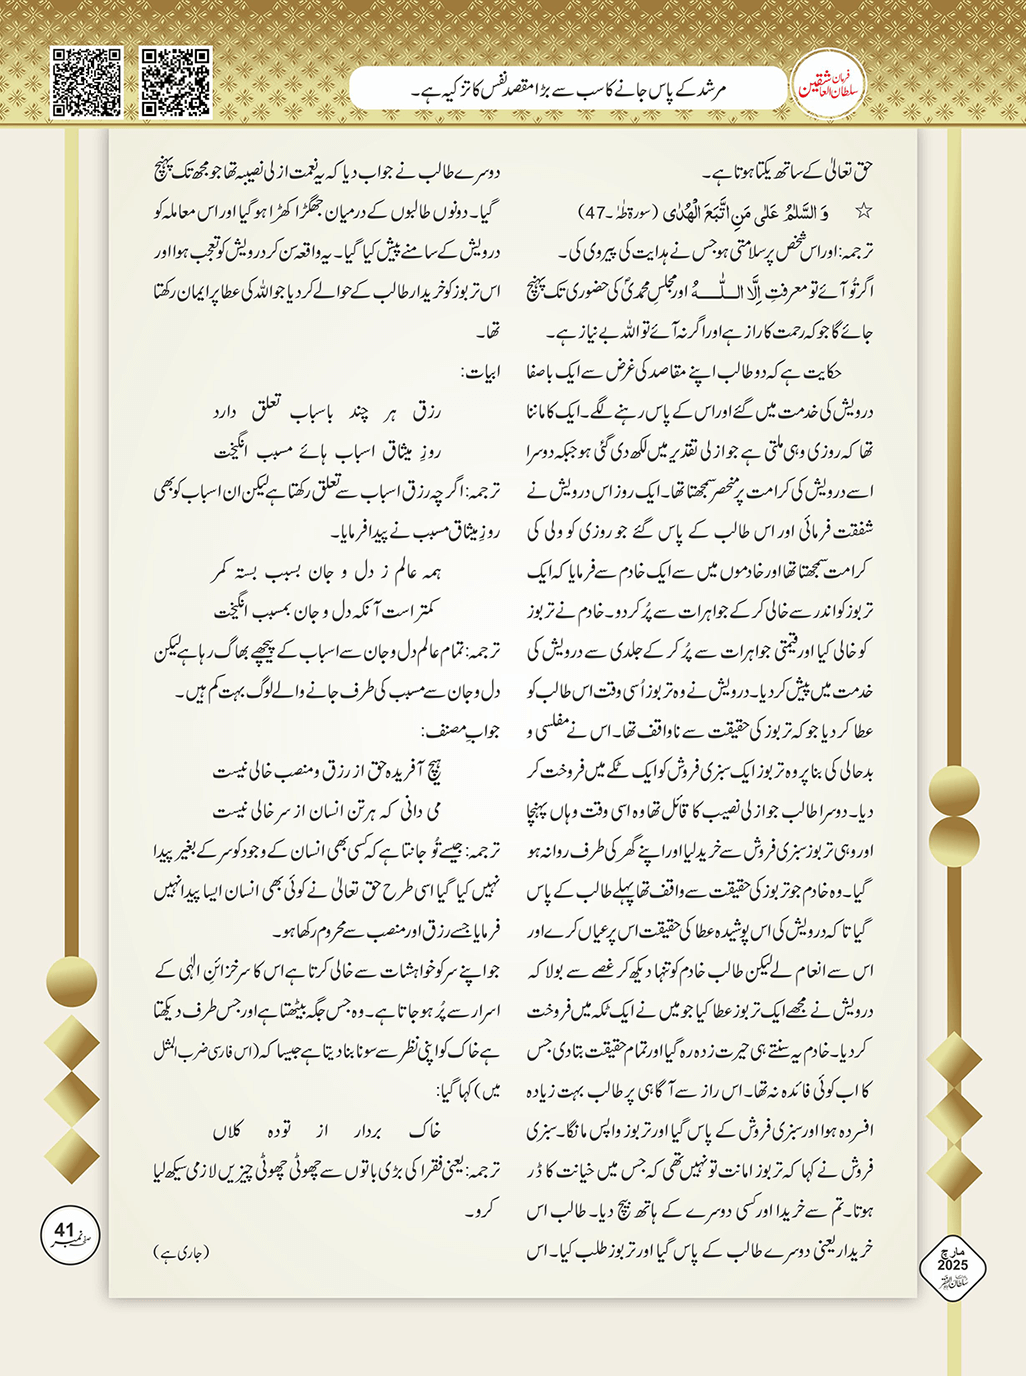 مرشد کے پاس جانے کا سب سے بڑا مقصد نفس کا تزکیہ ہے۔
فرمان
سلطان العاشقین
حق تعالیٰ کے ساتھ یکتا ہوتا ہے۔
☆ وَ السَّلٰمُ عَلٰی مَنِ اتَّبَعَ الْھُدٰی (سورۃ طٰہٰ۔47)
ترجمہ: اور اس شخص پر سلامتی ہو جس نے ہدایت کی پیروی کی۔
اگر تُو آئے تو معرفتِ اِلَّا اللّٰہُ اور مجلسِ محمدیؐ کی حضوری تک پہنچ
جائے گا جو کہ رحمت کا راز ہے اور اگر نہ آئے تو اللہ بے نیاز ہے۔
حکایت ہے کہ دو طالب اپنے مقاصد کی غرض سے ایک باصفا
درویش کی خدمت میں گئے اور اس کے پاس رہنے لگے۔ ایک کا ماننا
تھا کہ روزی وہی ملتی ہے جو ازلی تقدیر میں لکھ دی گئی ہو جبکہ دوسرا
اسے درویش کی کرامت پر منحصر سمجھتا تھا۔ ایک روز اس درویش نے
شفقت فرمائی اور اس طالب کے پاس گئے جو روزی کو ولی کی
کرامت سمجھتا تھا اور خادموں میں سے ایک خادم سے فرمایا کہ ایک
تربوز کو اندر سے خالی کر کے جواہرات سے پُر کر دو۔ خادم نے تربوز
کو خالی کیا اور قیمتی جواہرات سے پُر کر کے جلدی سے درویش کی
خدمت میں پیش کر دیا۔ درویش نے وہ تربوز اُسی وقت اس طالب کو
عطا کر دیا جو کہ تربوز کی حقیقت سے ناواقف تھا۔ اس نے مفلسی و
بدحالی کی بنا پر وہ تربوز ایک سبزی فروش کو ایک ٹکے میں فروخت کر
دیا۔ دوسرا طالب جو ازلی نصیب کا قائل تھا وہ اسی وقت وہاں پہنچا
اور وہی تربوز سبزی فروش سے خرید لیا اور اپنے گھر کی طرف روانہ ہو
گیا۔ وہ خادم جو تربوز کی حقیقت سے واقف تھا پہلے طالب کے پاس
گیا تاکہ درویش کی اس پوشیدہ عطا کی حقیقت اس پر عیاں کرے اور
اس سے انعام لے لیکن طالب خادم کو تنہا دیکھ کر غصے سے بولا کہ
درویش نے مجھے ایک تربوز عطا کیا جو میں نے ایک ٹکہ میں فروخت
کر دیا۔ خادم یہ سنتے ہی حیرت زدہ رہ گیا اور تمام حقیقت بتا دی جس
کا اب کوئی فائدہ نہ تھا۔ اس راز سے آگاہی پر طالب بہت زیادہ
افسردہ ہوا اور سبزی فروش کے پاس گیا اور تربوز واپس مانگا۔ سبزی
فروش نے کہا کہ تربوز امانت تو نہیں تھی کہ جس میں خیانت کا ڈر
ہوتا۔ تم سے خریدا اور کسی دوسرے کے ہاتھ بیچ دیا۔ طالب اس
خریدار یعنی دوسرے طالب کے پاس گیا اور تربوز طلب کیا۔ اس
دوسرے طالب نے جواب دیا کہ یہ نعمت ازلی نصیبہ تھا جو مجھ تک پہنچ
گیا۔ دونوں طالبوں کے درمیان جھگڑا کھڑا ہو گیا اور اس معاملہ کو
درویش کے سامنے پیش کیا گیا۔ یہ واقعہ سن کر درویش کو تعجب ہوا اور
اس تربوز کو خریدار طالب کے حوالے کر دیا جو اللہ کی عطا پر ایمان رکھتا
تھا۔
ابیات:
رزق ہر چند باسباب تعلق دارد
روزِ میثاق اسباب ہائے مسبب انگیخت
ترجمہ: اگرچہ رزق اسباب سے تعلق رکھتا ہے لیکن ان اسباب کو بھی
روزِ میثاق مسبب نے پیدا فرمایا۔
ہمہ عالم ز دل و جان بسبب بستہ کمر
کمتر است آنکہ دل و جان بمسبب انگیخت
ترجمہ: تمام عالم دل و جان سے اسباب کے پیچھے بھاگ رہا ہے لیکن
دل و جان سے مسبب کی طرف جانے والے لوگ بہت کم ہیں۔
جوابِ مصنف:
ہیچ آفریدہ حق از رزق و منصب خالی نیست
می دانی کہ ہر تن انسان از سر خالی نیست
ترجمہ: جیسے تُو جانتا ہے کہ کسی بھی انسان کے وجود کو سر کے بغیر پیدا
نہیں کیا گیا اسی طرح حق تعالیٰ نے کوئی بھی انسان ایسا پیدا نہیں
فرمایا جسے رزق اور منصب سے محروم رکھا ہو۔
جو اپنے سر کو خواہشات سے خالی کرتا ہے اس کا سر خزائنِ الٰہی کے
اسرار سے پُر ہو جاتا ہے۔ وہ جس جگہ بیٹھتا ہے اور جس طرف دیکھتا
ہے خاک کو اپنی نظر سے سونا بنا دیتا ہے جیسا کہ (اس فارسی ضرب المثل
میں) کہا گیا:
خاک بردار از تودہ کلاں
ترجمہ: یعنی فقرا کی بڑی باتوں سے چھوٹی چھوٹی چیزیں لازمی سیکھ لیا
کرو۔
(جاری ہے)
41
صفحہ نمبر
مارچ
2025
سلطان الفقر